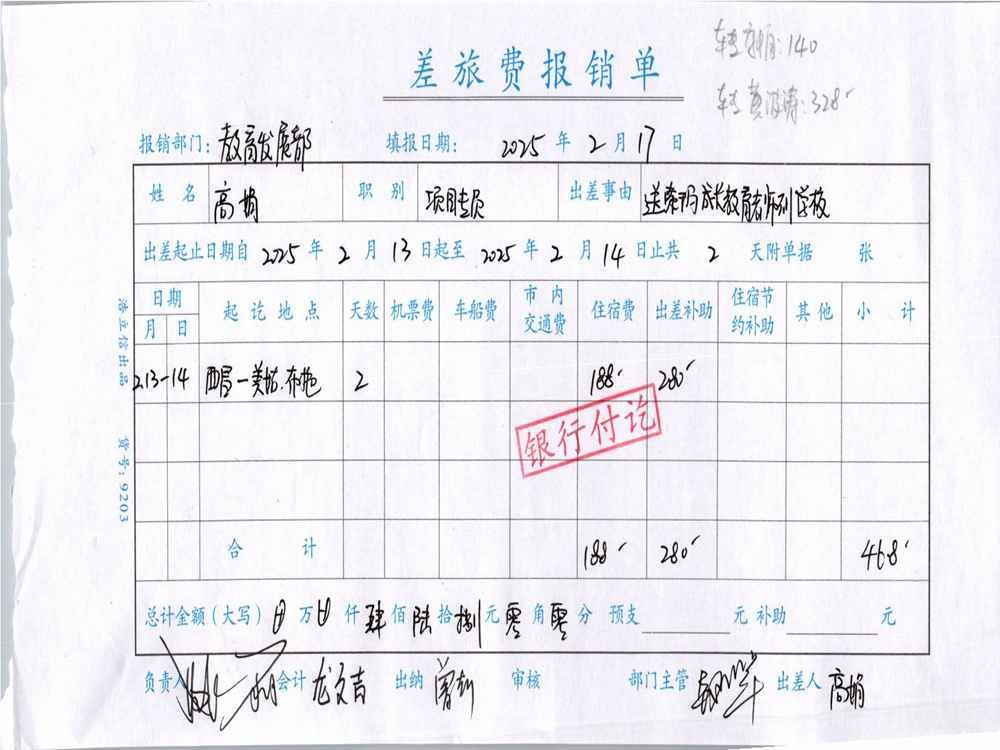 转高娟:140
差旅费报销单
转黄波涛:328
报销部门:教育发展部 填报日期: 2025 年 2 月 17 日
姓名 高娟 职别 项目专员 出差事由
出差起止日期自 2025 年 2 月 13 日起至 2025 年 2 月 14 日止共 2 天附单据 张
日期 起讫地点 天数 机票费 车船费 市内交通费 住宿费 出差补助 住宿节约补助 其他 小计
月 日
2.13-14 西昌-美姑.布拖 2 188 280
银行付讫
合计 188 280 468
总计金额(大写) 万 仟 肆 佰 陆 拾 捌 元 零 角 零 分 预支 元 补助 元
负责人 会计 龙文吉 出纳 审核 部门主管 出差人 高娟
浩立信出品 货号:9203